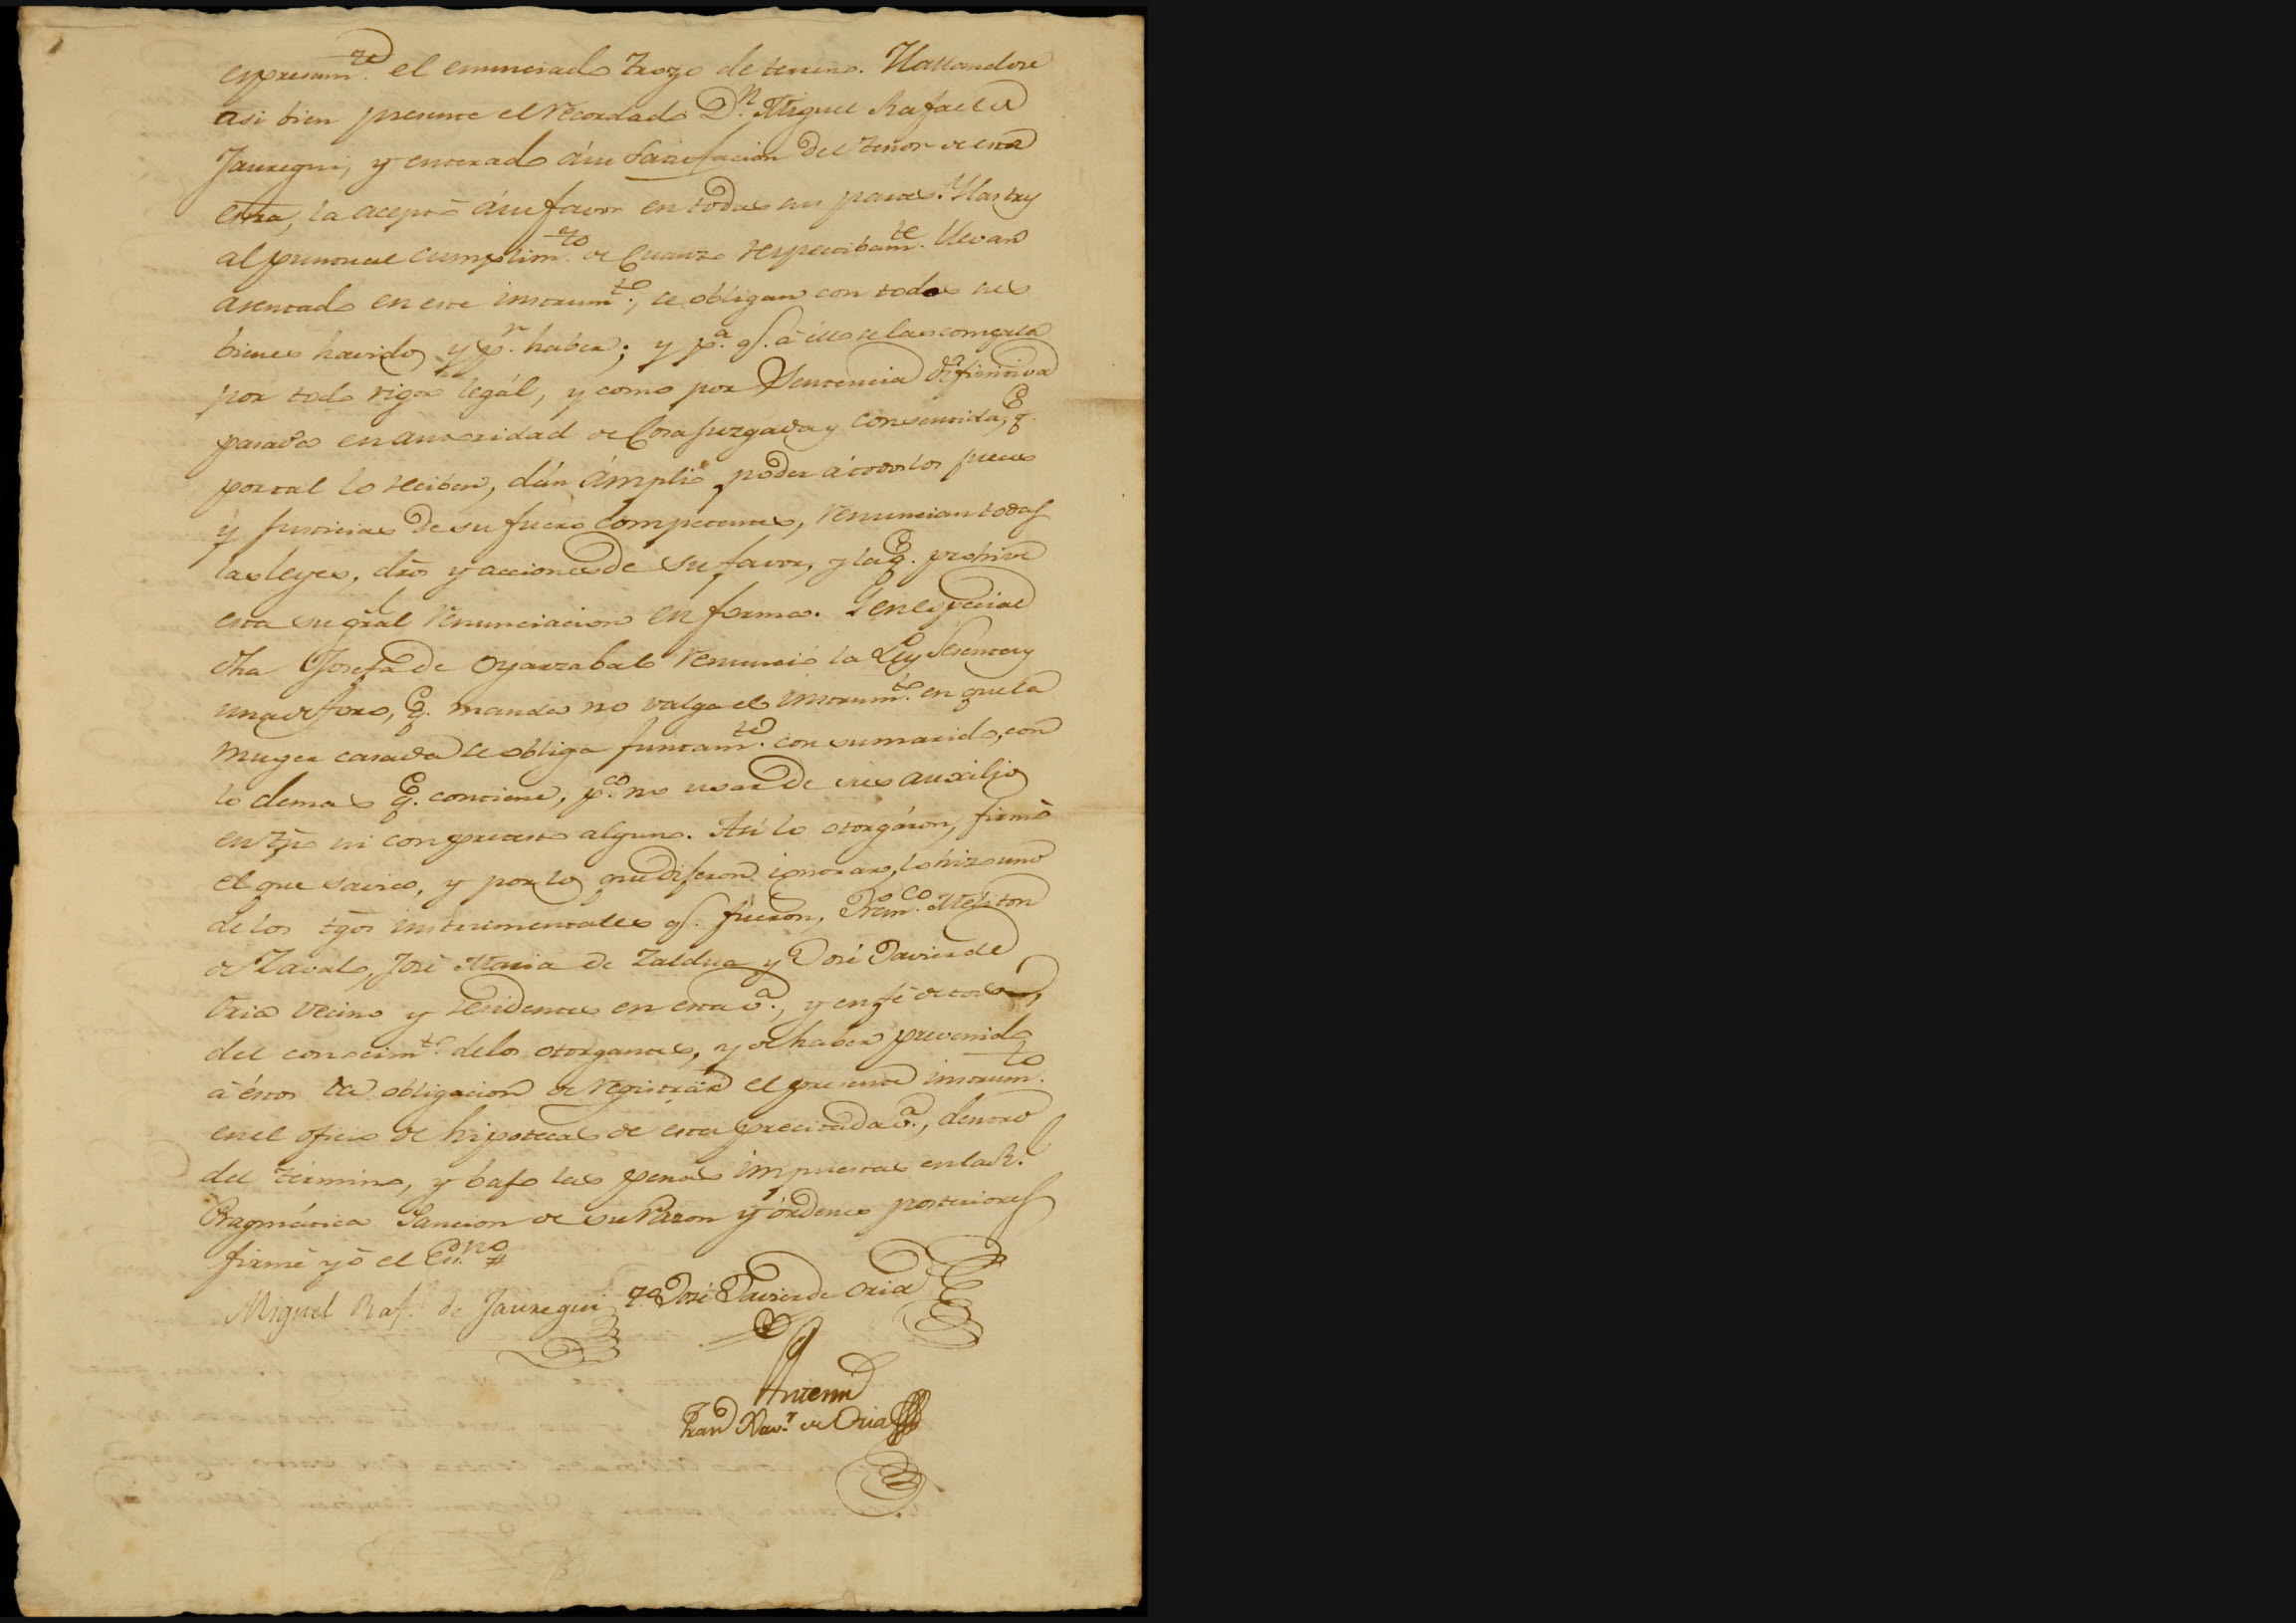 expresam.te el enunciado trozo de terreno. Hallandose
asi bien presente el recordado D.n Miguel Rafael de
Jauregui, y enterado á su satisfacion del tenor de esta
esrra, la aceptó á su favor en todas sus partes. Ylas trs
al puntual cumplim.to de Cuanto respectibam.te llevan
asentado en este instrum.to, se obligan con todos sus
bienes havidos y p.r haber; y p.a q.e á ello se las compela
por todo rigor legál, y como por Sentencia difinitiva
pasada en autoridad de Cosa juzgada y consentida, q.e
por tal lo reciben, dán ámplio poder á todos los jueces
y justicias de su fuero Competentes, renuncian todas
las leyes, dros y acciones de su favor, y la q.e prohive
esta su gral renunciacion en forma. Y en especial
dha Josefa de Oyarzabal renunció la Ley Sesenta y
una de toro, q.e manda no valga el instrum.to en que la
muger casada se obliga juntam.te con su marido, con
lo demas q.e contiene, p.co no usar de sus auxilios
en tpo ni con pretesto alguno. Así lo otorgáron, firmó
el que savia, y por los que dijeron ignorar, lo hizo uno
de los tgos instrumentales q.e fueron, Fran.co Meliton
de Zavala, José Maria de Zaldua y José Javier de
Oria vecinos y residentes en esta v.a, y en fé de todo,
del conocim.to de los otorgantes, y de haber prevenido
á éstos la obligacion de registrar el presente instrum.to
en el oficio de hipotecas de esta precitada v.a, dentro
del término, y bajo las penas impuestas en la R.l
Pragmática Sancion de su razon y órdenes posteriores
firmé yó el Es.no
Miguel Raf.l de Jauregui t.o José Javier de Oria
Antemi
Fran.co Xav.r de Oria